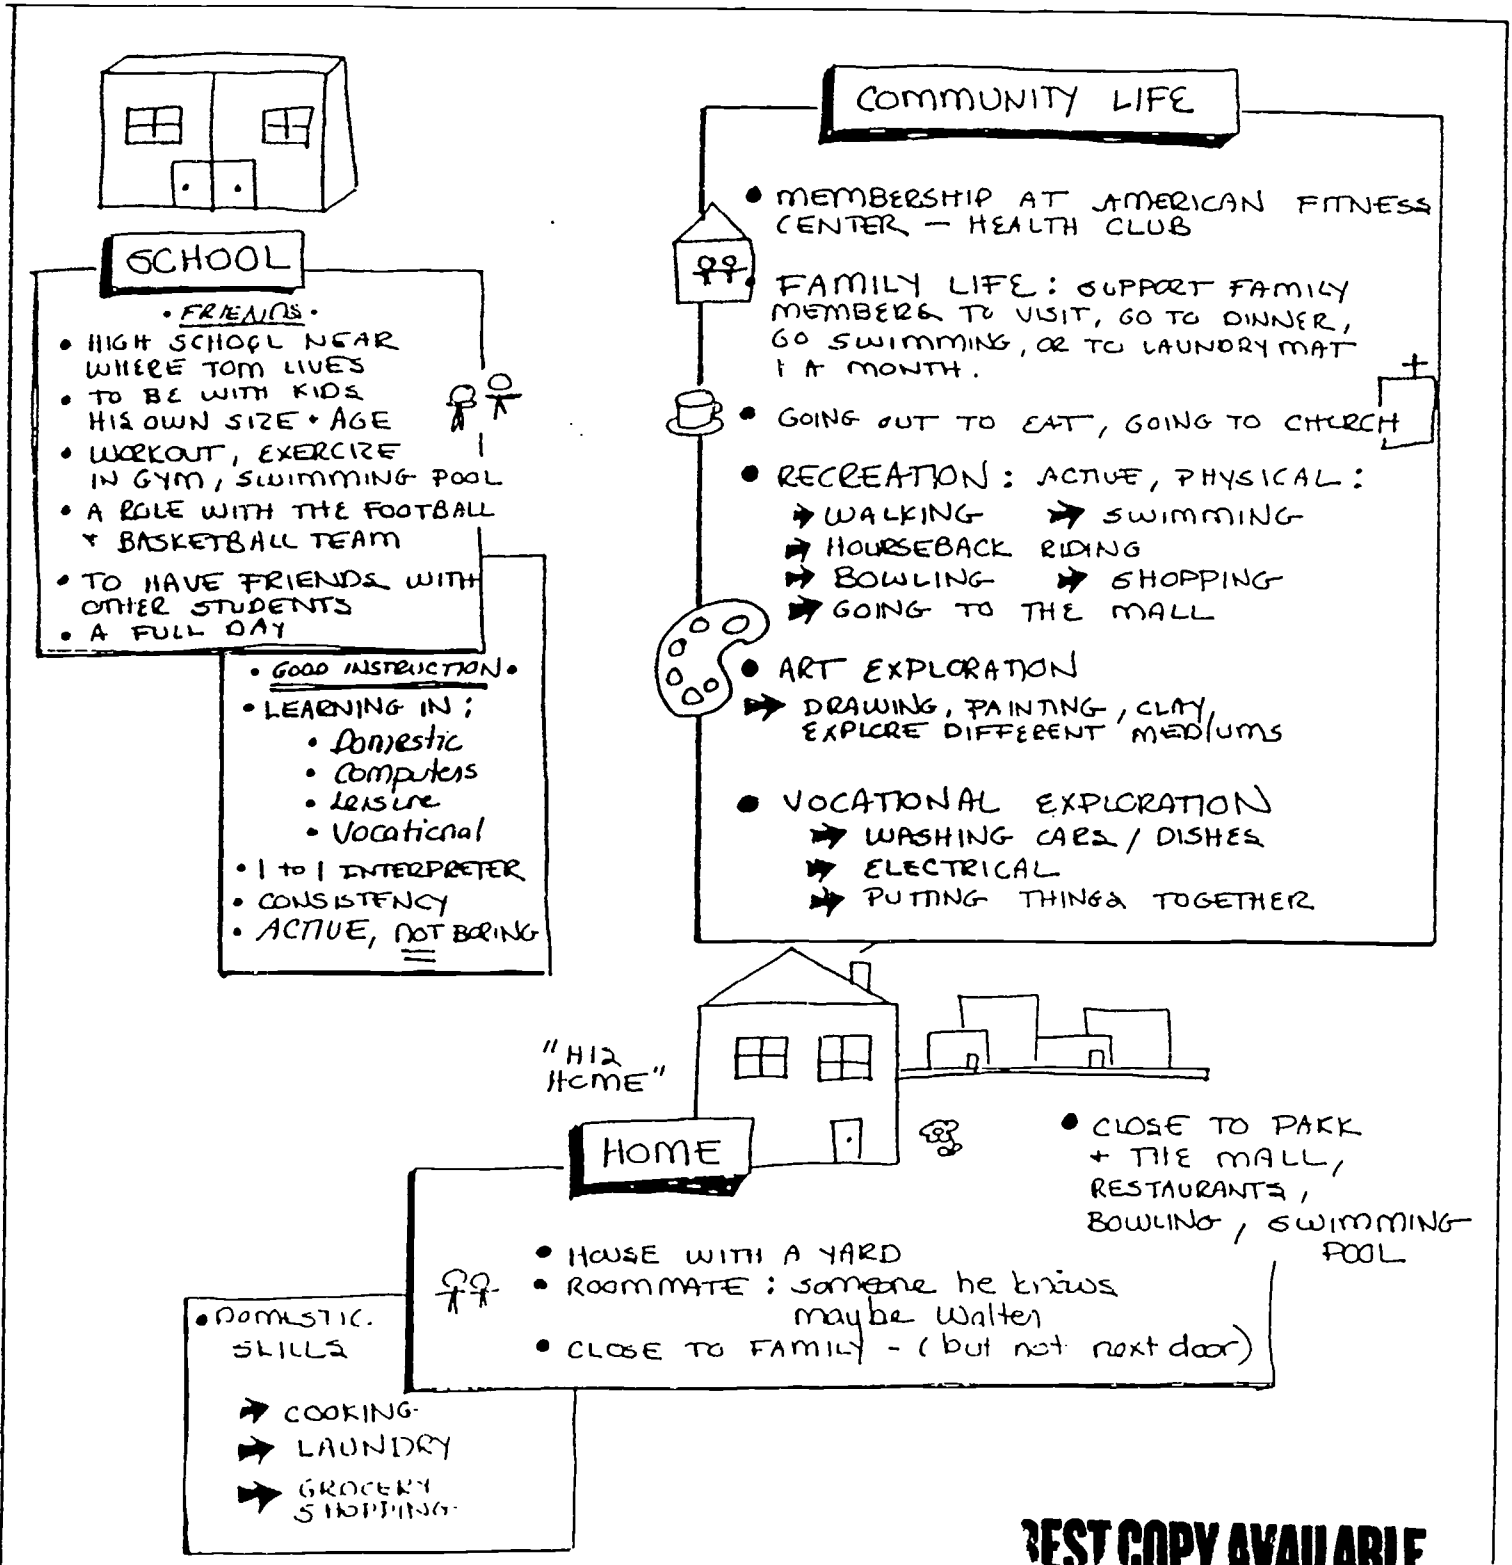 SCHOOL
• FRIENDS •
• HIGH SCHOOL NEAR
WHERE TOM LIVES
• TO BE WITH KIDS
HIS OWN SIZE + AGE
• WORKOUT, EXERCIZE
IN GYM, SWIMMING POOL
• A ROLE WITH THE FOOTBALL
+ BASKETBALL TEAM
• TO HAVE FRIENDS WITH
OTHER STUDENTS
• A FULL DAY
• GOOD INSTRUCTION •
• LEARNING IN :
• Domestic
• Computers
• Leisure
• Vocational
• 1 to 1 INTERPRETER
• CONSISTENCY
• ACTIVE, NOT BORING
COMMUNITY LIFE
• MEMBERSHIP AT AMERICAN FITNESS
CENTER — HEALTH CLUB
• FAMILY LIFE : SUPPORT FAMILY
MEMBERS TO VISIT, GO TO DINNER,
GO SWIMMING, OR TO LAUNDRY MAT
1 A MONTH.
• GOING OUT TO EAT, GOING TO CHURCH
• RECREATION : ACTIVE, PHYSICAL :
➔ WALKING ➔ SWIMMING
➔ HOURSEBACK RIDING
➔ BOWLING ➔ SHOPPING
➔ GOING TO THE MALL
• ART EXPLORATION
➔ DRAWING, PAINTING, CLAY,
EXPLORE DIFFERENT MEDIUMS
• VOCATIONAL EXPLORATION
➔ WASHING CARS / DISHES
➔ ELECTRICAL
➔ PUTTING THINGS TOGETHER
"HIS
HOME"
HOME
• CLOSE TO PARK
+ THE MALL,
RESTAURANTS,
BOWLING, SWIMMING
POOL
• HOUSE WITH A YARD
• ROOMMATE : someone he knows
maybe Walter
• CLOSE TO FAMILY - (but not next door)
• DOMESTIC.
SKILLS
➔ COOKING
➔ LAUNDRY
➔ GROCERY
SHOPPING
BEST COPY AVAILABLE